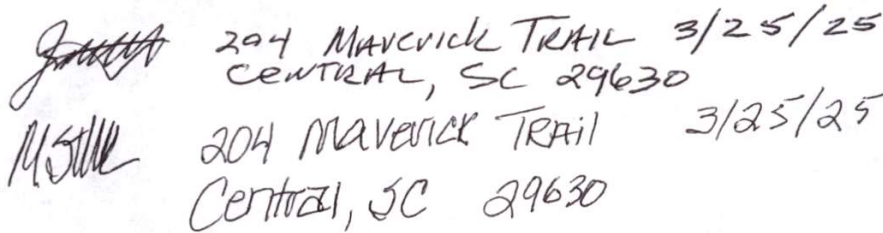 204 Maverick Trail 3/25/25
Central, SC 29630
204 Maverick Trail 3/25/25
Central, SC 29630